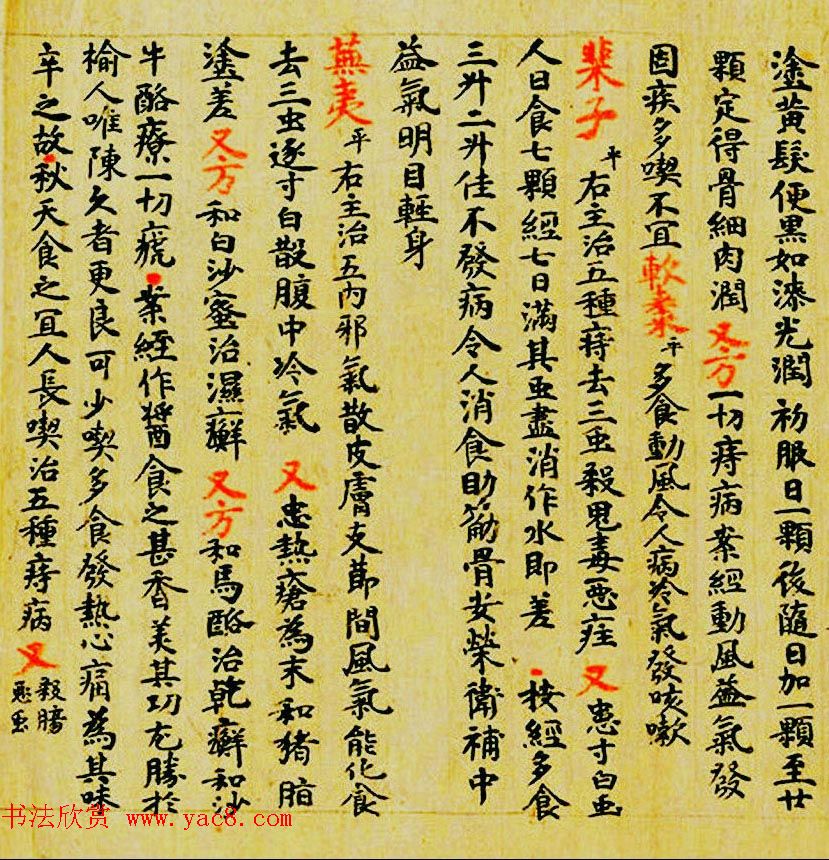 塗黃髮便黑如漆光潤初服日一顆後隨日加一顆至廿
顆定得骨細肉潤又方一切痔病案經動風益氣發
固疾多喫不冝軟棗平多食動風令人病冷氣發咳嗽
榧子平右主治五種痔去三虫殺鬼毒惡疰又患寸白虫
人日食七顆經七日滿其虫盡消作水即差按經多食
三升二升佳不發病令人消食助筋骨安榮衛補中
益氣明目輕身
蕪荑平右主治五內邪氣散皮膚支莭間風氣能化食
去三虫逐寸白散腹中冷氣又患熱瘡為末和猪脂
塗差又方和白沙蜜治濕癬又方和馬酪治乾癬和沙
牛酪療一切瘡案經作醬食之甚香美其功尤勝於
榆人唯陳久者更良可少喫多食發熱心痛為其味
辛之故秋天食之冝人長喫治五種痔病又殺腸
惡虫
书法欣赏 www.yac8.com